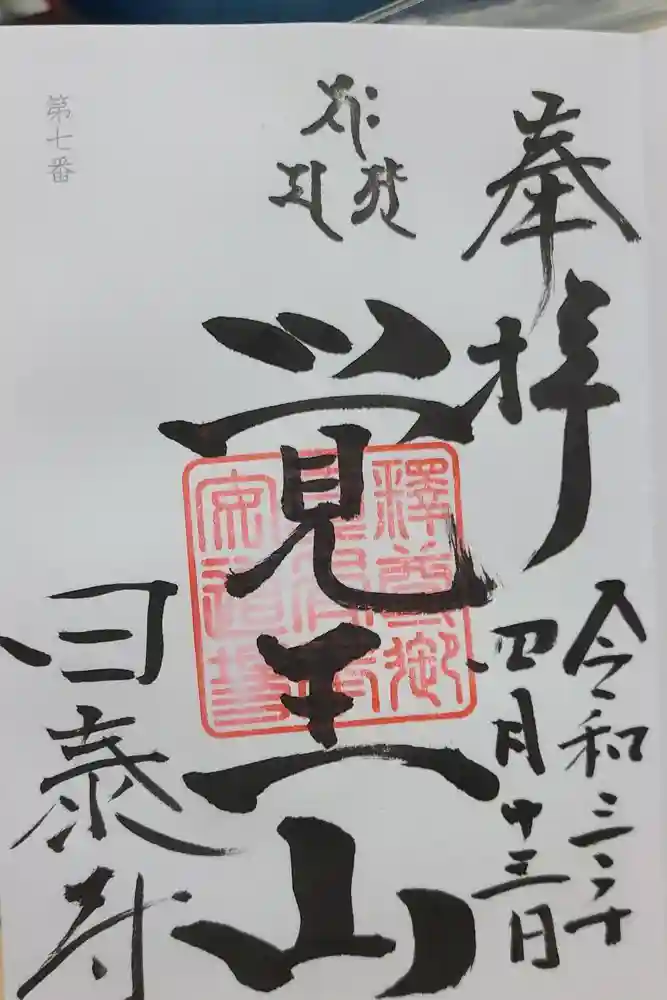 奉拝
令和三年
四月十三日
覚王山
釋尊御
日泰寺
第七番